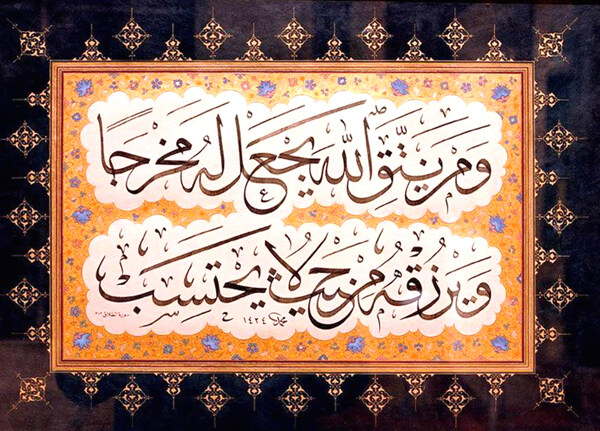 وَمَنْ يَتَّقِ اللهَ يَجْعَلْ لَهُ مَخْرَجًا
وَيَرْزُقْهُ مِنْ حَيْثُ لَا يَحْتَسِبُ
محمد ١٤٢٤